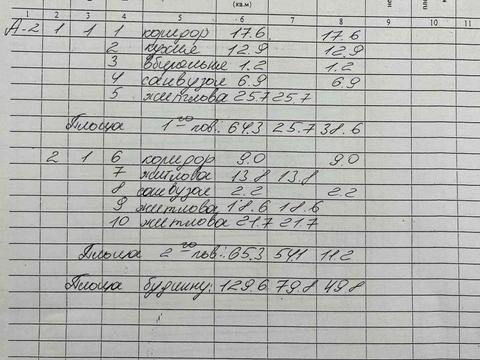 (кв.м)
1 2 3 4 5 6 7 8 9 10 11
А-2 1 1 1 коридор 17.6 17.6
2 кухня 12.9 12.9
3 вбиральня 1.2 1.2
4 санвузол 6.9 6.9
5 житлова 25.7 25.7
Площа 1го пов: 64.3 25.7 38.6
2 1 6 коридор 9.0 9.0
7 житлова 13.8 13.8
8 санвузол 2.2 2.2
9 житлова 18.6 18.6
10 житлова 21.7 21.7
Площа 2го пов: 65.3 54.1 11.2
Площа будинку: 129.6 79.8 49.8